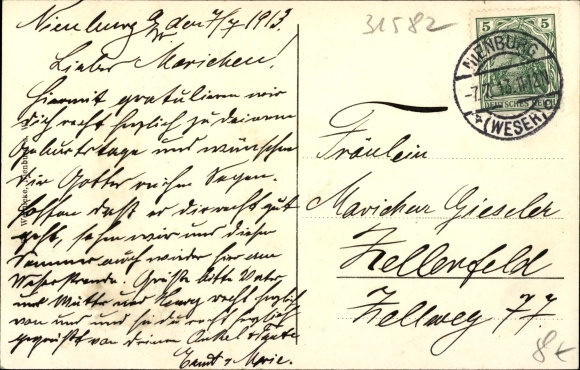 Nienburg a/W. den 7/7 1913.
Liebes Mariechen!
Hiermit gratulieren wir
dich recht herzlich zu deinem
Geburtstage und wünschen
dir Gottes reichen Segen.
Hoffen daß es dir recht gut
geht, sehen wir uns diesen
Sommer auch wieder hier am
Weserstrande. Grüße bitte Vater
und Mutter und recht herzlich
von uns und sei du recht herzlich
gegrüßt von deinem Onkel & Tante
Ernst & Marie.
31582
5 5
DEUTSCHES REICH
NIENBURG
-7.7.13.
* (WESER)
Fräulein
Mariechen Gieseler
Zellerfeld
Zellweg 77.
8